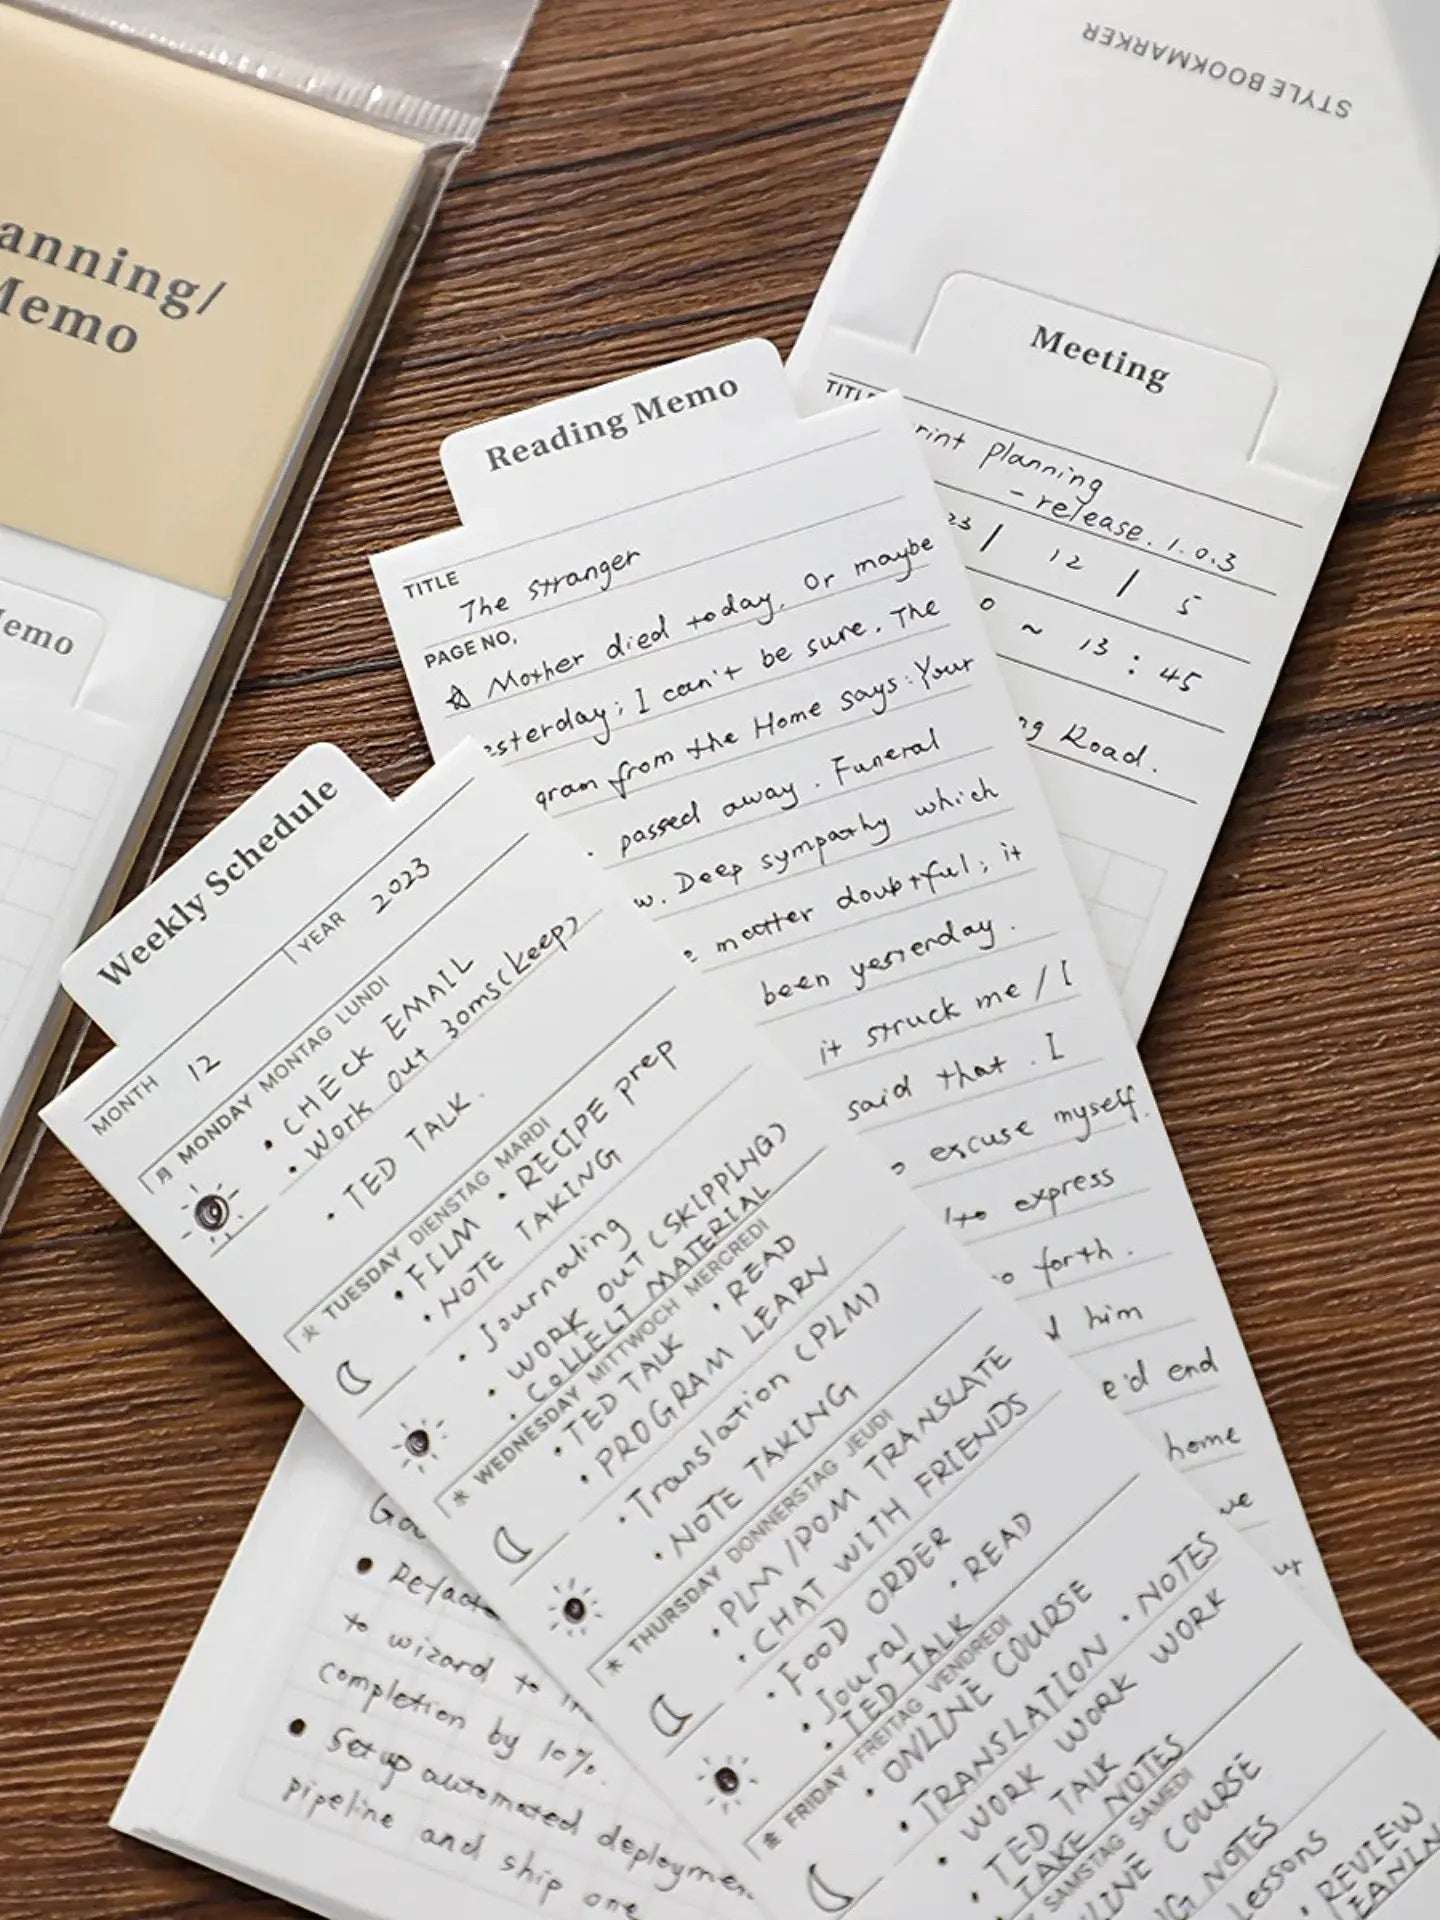 anning/
Memo
Memo
STYLE BOOKMARKER
Meeting
TITLE
rint planning
- release. 1.0.3
23 / 12 / 5
0 ~ 13 : 45
ng Road.
Reading Memo
TITLE
The stranger
PAGE NO.
☆ Mother died today. Or maybe
esterday; I can't be sure. The
gram from the Home says: Your
passed away. Funeral
w. Deep sympathy which
e matter doubtful; it
been yesterday.
it struck me / I
said that. I
o excuse myself.
to express
o forth.
d him
e'd end
home
ue
up
Weekly Schedule
MONTH 12 YEAR 2023
月 MONDAY MONTAG LUNDI
• CHECK EMAIL
• Work out 30ms (keep)
• TED TALK.
火 TUESDAY DIENSTAG MARDI
• FILM • RECIPE prep
• NOTE TAKING
• Journaling
• WORK OUT (SKIPPING)
• COLLECT MATERIAL
水 WEDNESDAY MITTWOCH MERCREDI
• TED TALK • READ
• PROGRAM LEARN
• Translation (PLM)
• NOTE TAKING
木 THURSDAY DONNERSTAG JEUDI
• PLM / DOM TRANSLATE
• CHAT WITH FRIENDS
• FOOD ORDER
• Joural • READ
• TED TALK
金 FRIDAY FREITAG VENDREDI
• ONLINE COURSE
• TRANSLATION • NOTES
• WORK WORK WORK
• TED TALK
• TAKE NOTES
SAMSTAG SAMEDI
COURSE
NOTES
Lessons
• REVIEW
• Refacto
to wizard to in
completion by 10%.
• Setup automated deployment
pipeline and ship one